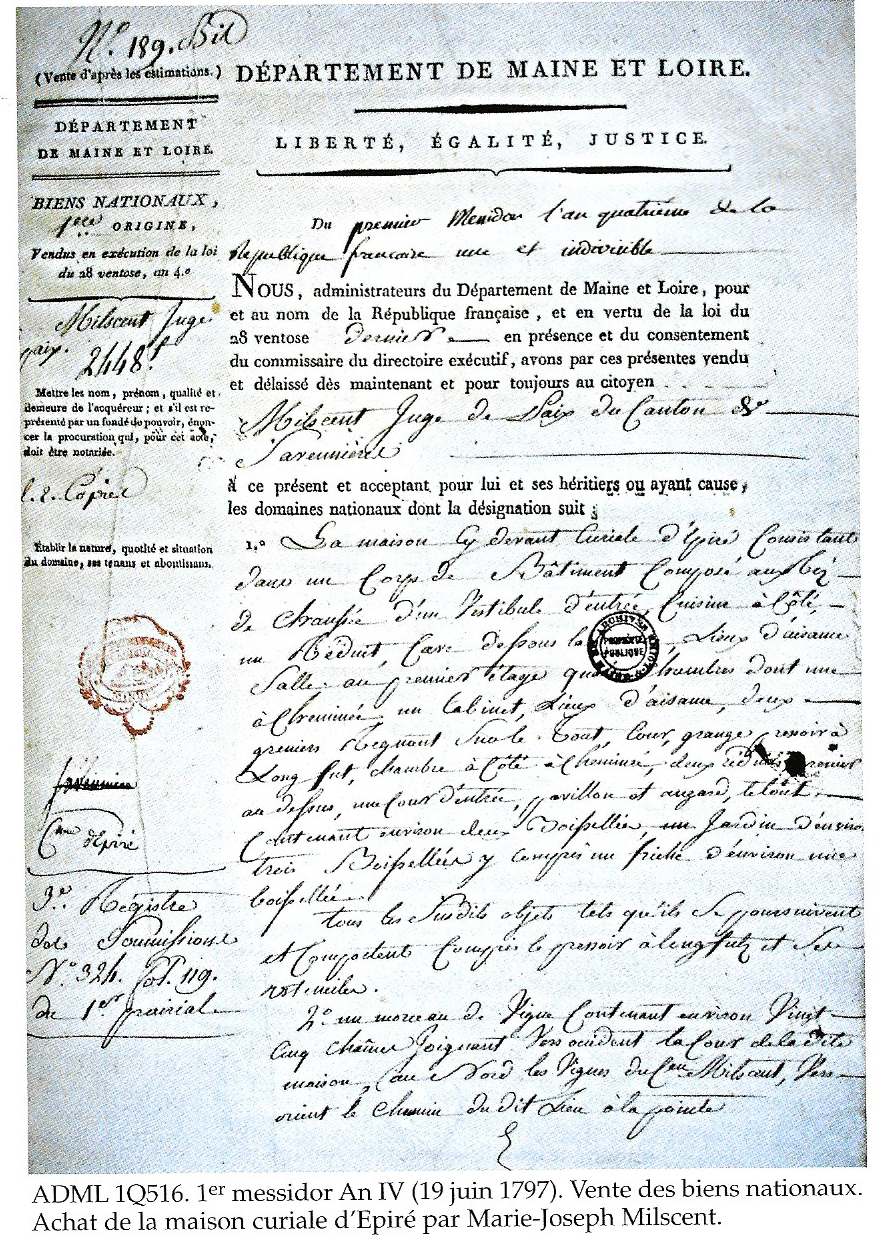 N.º 189. Bis
(Vente d'après les estimations.)
DÉPARTEMENT
DE MAINE ET LOIRE.
BIENS NATIONAUX,
1.ère ORIGINE,
Vendus en exécution de la loi
du 28 ventose, an 4.e
Milscent Juge
paix.
2448.#
Mettre les nom, prénom, qualité et
demeure de l'acquéreur ; et s'il est re-
présenté par un fondé de pouvoir, énon-
cer la procuration qui, pour cet acte,
doit être notariée.
Copie
Établir la nature, quotité et situation
du domaine, ses tenans et aboutissans.
Savennière
C.ne d'Epiré
3.e Régistre
de Soumissions
N.º 324. fol. 119.
du 1.er prairial
DÉPARTEMENT DE MAINE ET LOIRE.
LIBERTÉ, ÉGALITÉ, JUSTICE.
Du premier Messidor l'an quatrième de la
République française une et indivisible
NOUS, administrateurs du Département de Maine et Loire, pour
et au nom de la République française, et en vertu de la loi du
28 ventose dernier en présence et du consentement
du commissaire du directoire exécutif, avons par ces présentes vendu
et délaissé dès maintenant et pour toujours au citoyen
Milscent Juge de Paix du Canton de
Savennière
à ce présent et acceptant pour lui et ses héritiers ou ayant cause,
les domaines nationaux dont la désignation suit ;
1.º La maison Cy devant Curiale d'Epiré Consistant
dans un Corps de Bâtiment Composé au Rez
de chaussée d'un Vestibule d'entrée, Cuisine à Côté,
un Réduit, Cave dessous la Lieux d'aisance
Salle au premier étage Chambres dont une
à Cheminée, un Cabinet, Lieux d'aisance, deux
greniers Regnant Sur le Tout, Cour, grange, pressoir à
Long fut, chambre à Côté à Cheminée, deux réduits, grenier
au dessus, une Cour d'entrée, pavillon et auzard, le tout
Contenant environ deux Boissellée, un Jardin d'environ
trois Boissellées y compris un friche d'environ une
boissellée.
tous les Susdits objets tels qu'ils Se poursuivent
et Comportent Compris le pressoir à long futz et Ses
ustensiles.
2.º un morceau de Vigne Contenant environ Vingt
Cinq chaînes Joignant Vers occident la Cour de la dite
maison, au Nord les Vignes du C.en Milscent, Vers
orient le Chemin du dit Lieu à la pointe
ARCHIVES
PROPRIÉTÉ
PUBLIQUE
ADML 1Q516. 1er messidor An IV (19 juin 1797). Vente des biens nationaux.
Achat de la maison curiale d'Epiré par Marie-Joseph Milscent.